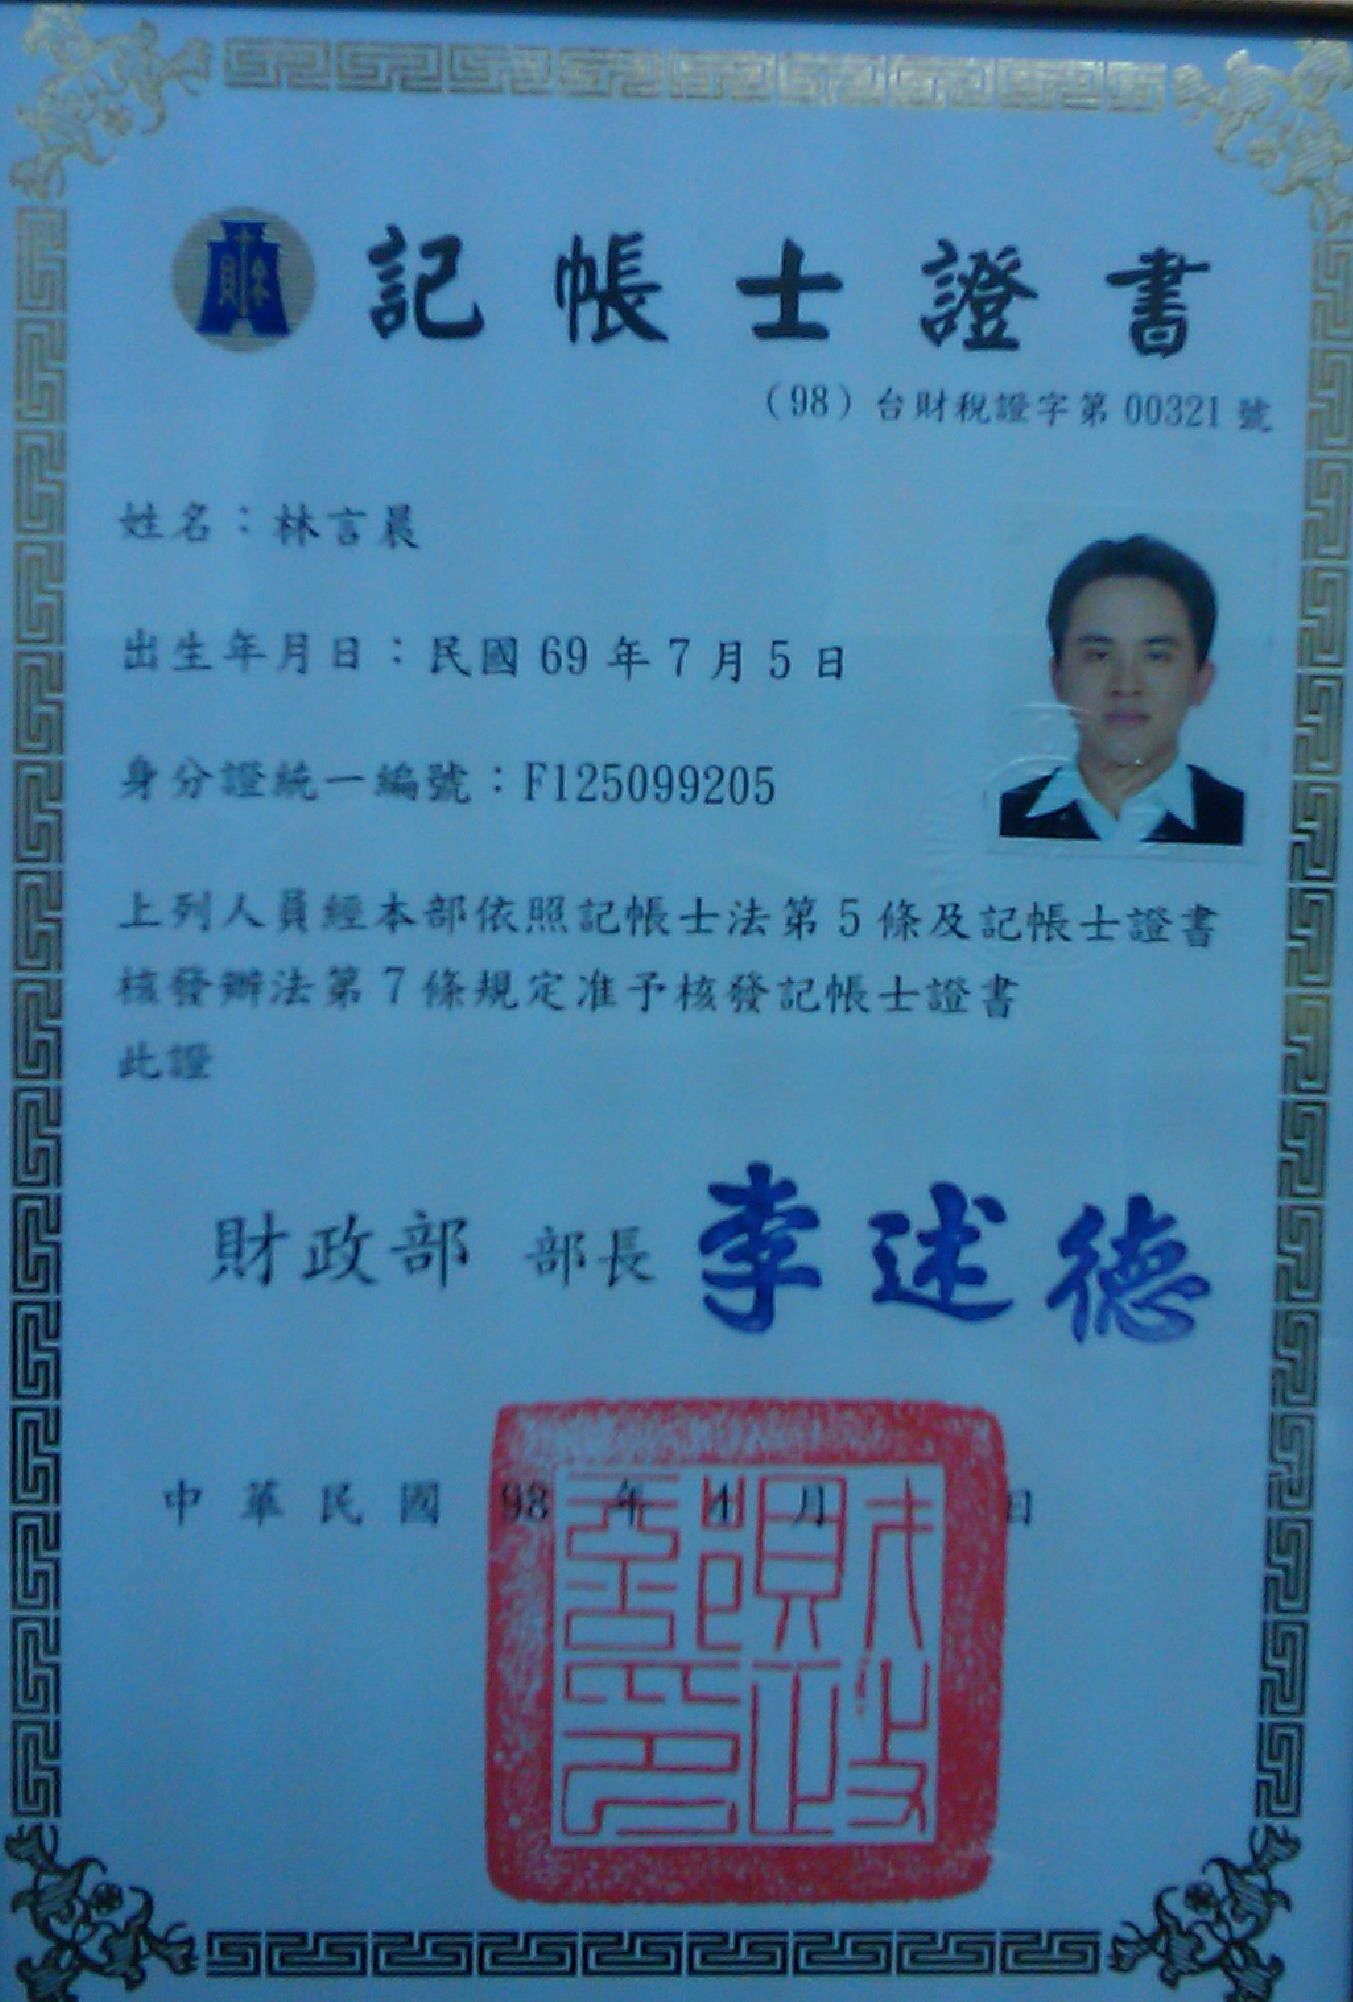 記帳士證書
（98）台財稅證字第 00321 號
姓名：林言晨
出生年月日：民國 69 年 7 月 5 日
身分證統一編號：F125099205
上列人員經本部依照記帳士法第 5 條及記帳士證書
核發辦法第 7 條規定准予核發記帳士證書
此證
財政部 部長 李述德
中華民國 98 年 4 月 日
財政部印